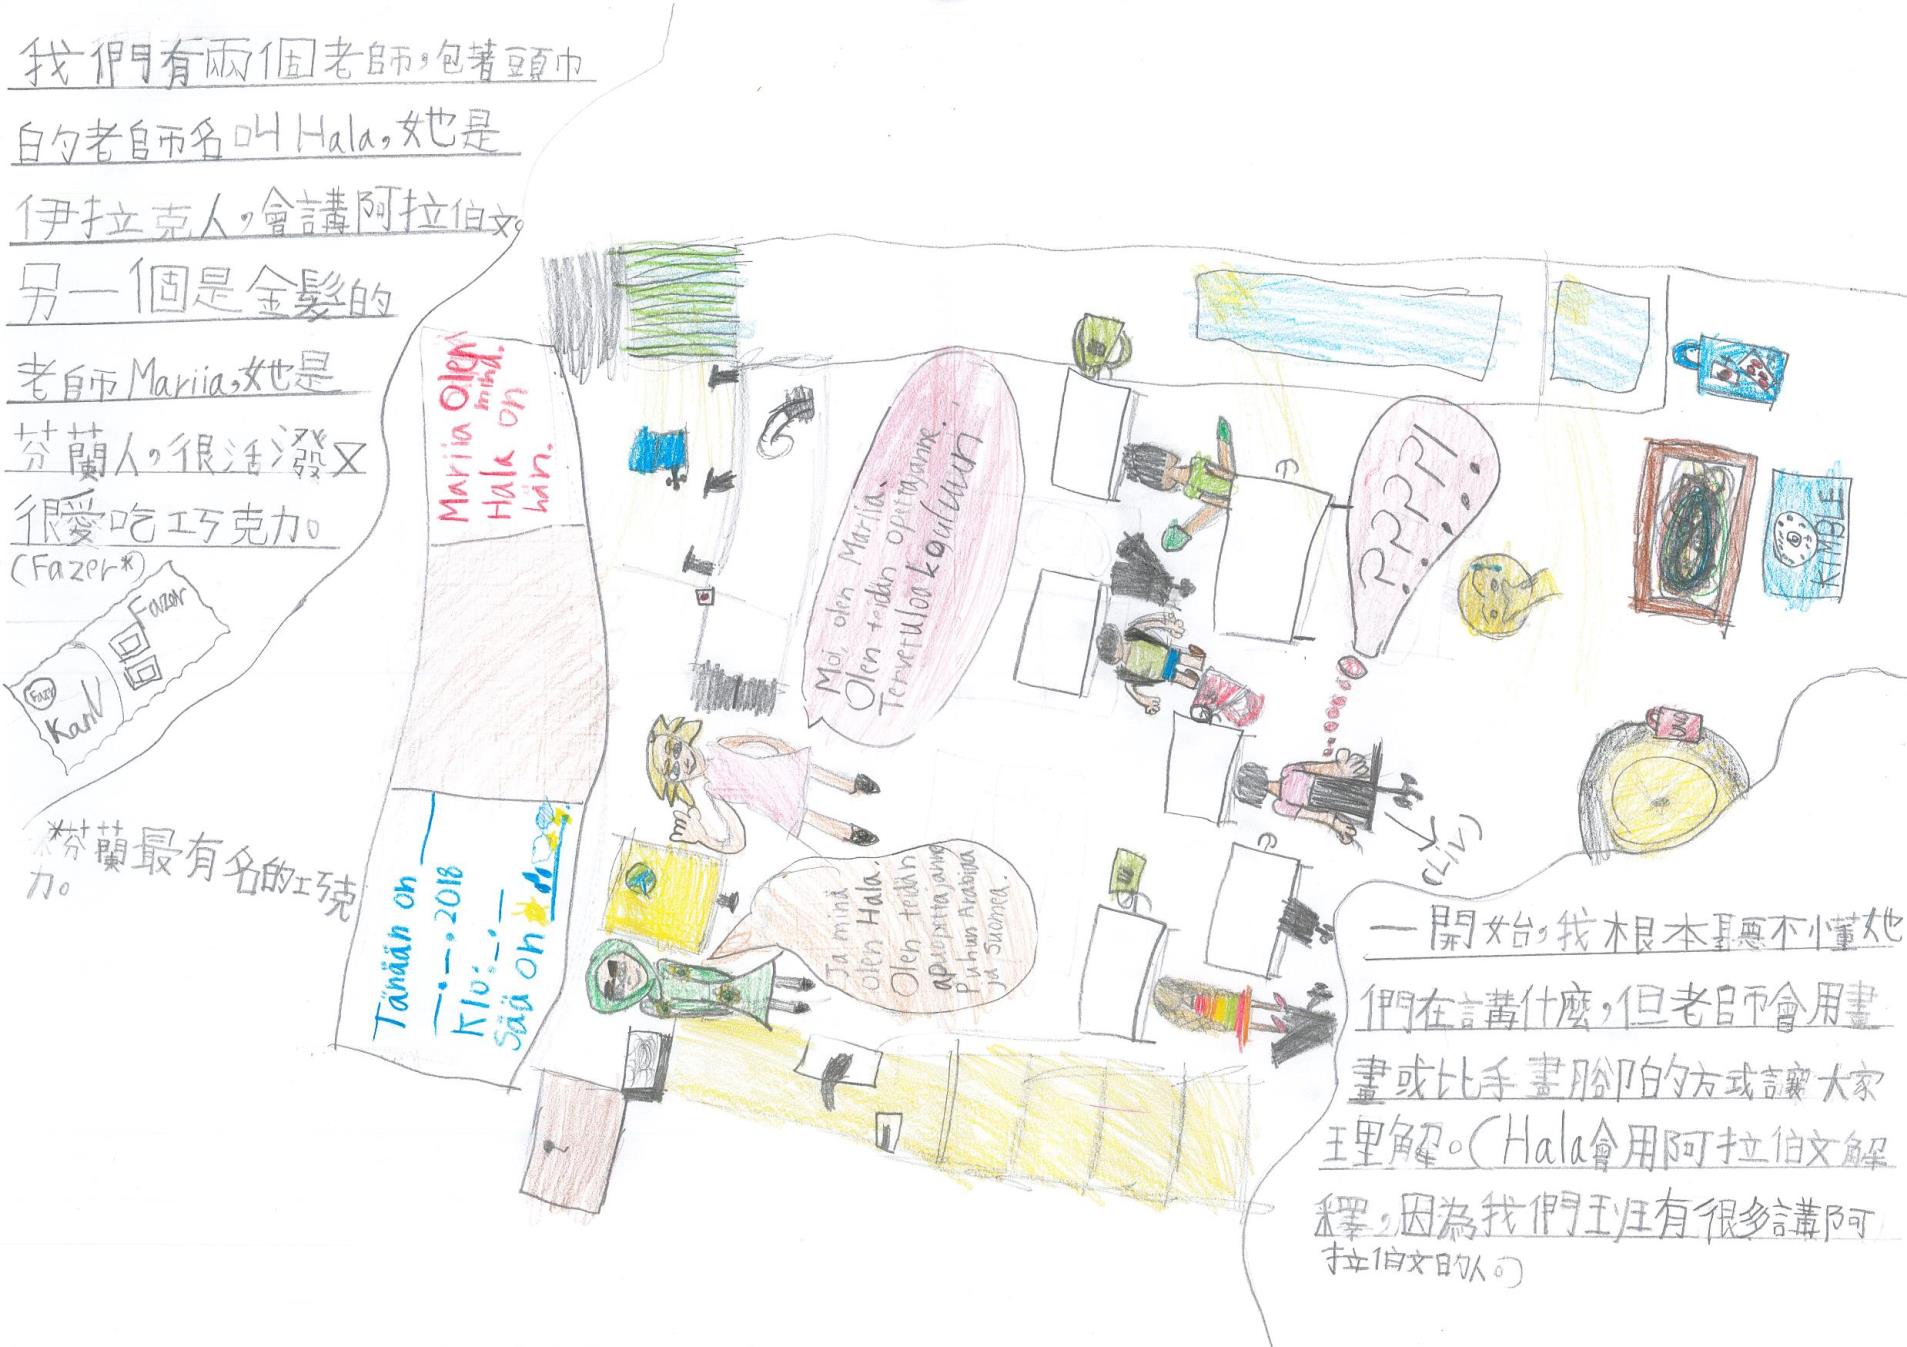 我們有兩個老師，包著頭巾
的老師名叫Hala，她是
伊拉克人，會講阿拉伯文。
另一個是金髮的
老師Mariia，她是
芬蘭人，很活潑又
很愛吃巧克力。
(Fazer*)
Fazer
Fazer
Karl
*芬蘭最有名的巧克
力。
Mariia Olen
minä.
Hala on
hän.
Tänään on
2018
Klo:
Sää on
Moi, olen Mariia.
Olen teidän opettajanne.
Tervetuloa kouluun.
Ja minä
olen Hala.
Olen teidän
apuopettajanne
Puhun Arabiaa
ja Suomea.
????!
KIMBLE
UNO
一開始，我根本聽不懂她
們在講什麼，但老師會用畫
畫或比手畫腳的方式讓大家
理解。(Hala會用阿拉伯文解
釋，因為我們班有很多講阿
拉伯文的人。)